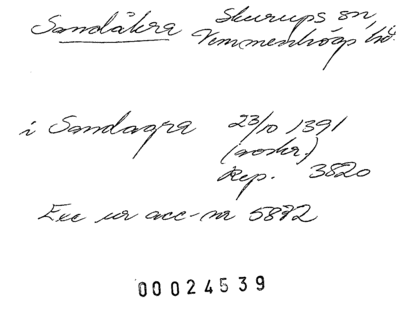 Sandåkra Skurups sn,
Vemmenhögs hd.
i Sandagra 23/10 1391
(avskr.)
Rep. 3820
Exc ur acc-nr 5872
00024539